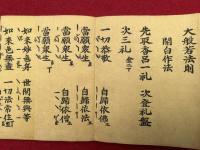 大般若法則
開白作法
先取香呂一礼 次登礼盤
次三礼
一切恭敬 自帰依佛
當願衆生 自帰依法
當願衆生 自帰依僧
如来妙色身 世間無與等
如来色無盡 一切法常住